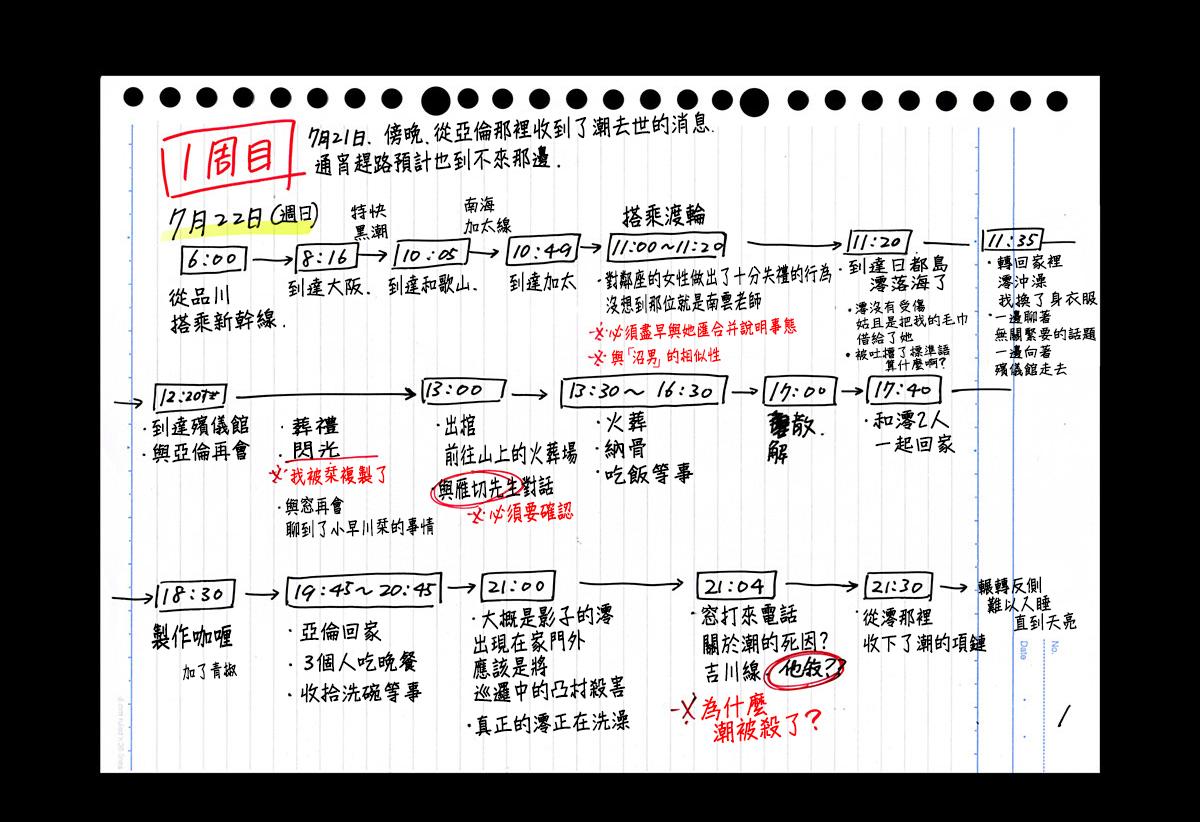 1周目
7月21日、傍晚、從亞倫那裡收到了潮去世的消息.
通宵趕路預計也到不來那邊.
7月22日(週日)
6:00
從品川
搭乘新幹線.
8:16
到達大阪.
特快
黑潮
10:05
到達和歌山.
南海
加太線
10:49
到達加太
搭乘渡輪
11:00~11:20
·對鄰座的女性做出了十分失禮的行為
沒想到那位就是南雲老師
-※·必須盡早與她匯合并說明事態
-※·與「沼男」的相似性
11:20
·到達日都島
澪落海了
·澪沒有受傷
姑且是把我的毛巾
借給了她
·被吐槽了標準語
算什麼啊?
11:35
·轉回家裡
澪沖澡
我換了身衣服
·一邊聊著
無關緊要的話題
一邊向著
殯儀館走去
12:20
·到達殯儀館
·與亞倫再會
·葬禮
·閃光
※·我被栞複製了
·與窓再會
聊到了小早川栞的事情
13:00
·出棺
前往山上的火葬場
與雁切先生對話
※·必須要確認
13:30~16:30
·火葬
·納骨
·吃飯等事
17:00
散.
解
17:40
·和澪2人
一起回家
18:30
製作咖喱
加了青椒
19:45~20:45
·亞倫回家
·3個人吃晚餐
·收拾洗碗等事
21:00
·大概是影子的澪
出現在家門外
應該是將
巡邏中的凸村殺害
·真正的澪正在洗澡
21:04
·窓打來電話
關於潮的死因?
吉川線 他殺??
-※為什麼
潮被殺了?
21:30
·從澪那裡
收下了潮的項鏈
輾轉反側
難以入睡
直到天亮
No.
Date
1